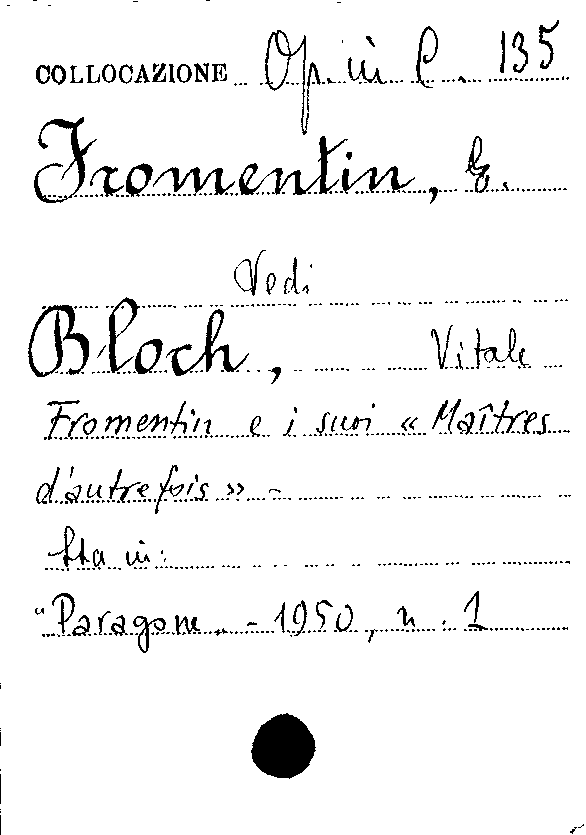 COLLOCAZIONE Op. in C. 135
Fromentin, E.
Vedi
Bloch, Vitale
Fromentin e i suoi « Maîtres
d'autrefois » -
Sta in:
"Paragone" - 1950, n. 1